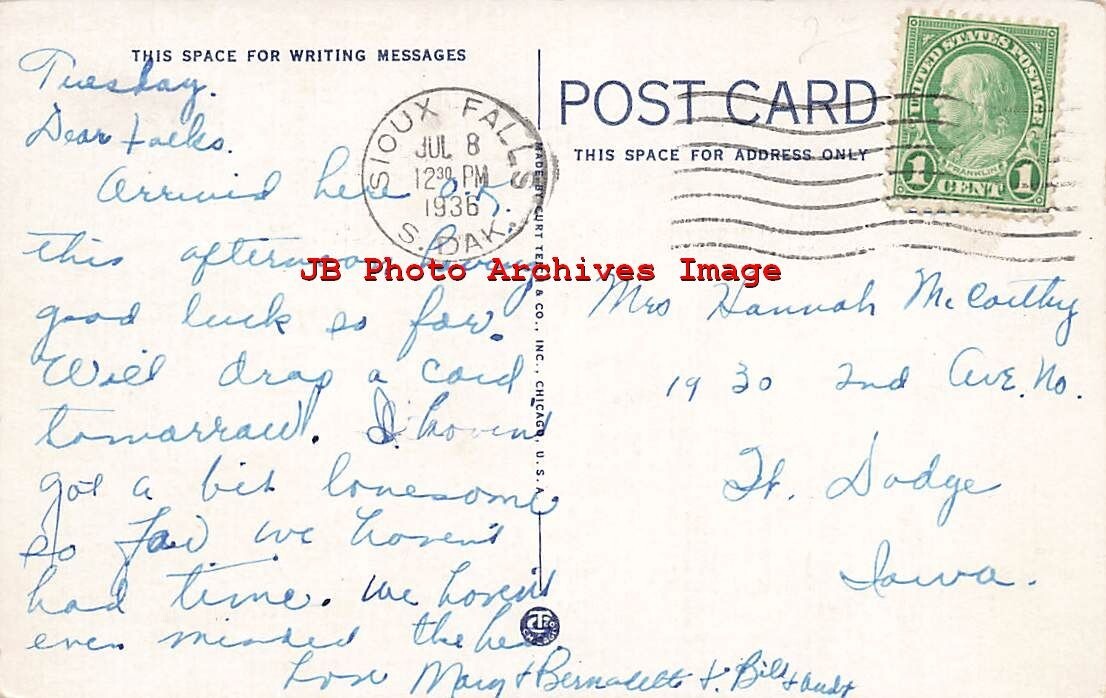 THIS SPACE FOR WRITING MESSAGES
Tuesday.
Dear folks.
Arrived here
this afternoon having
good luck so far.
Will drop a card
tomorrow. I haven't
got a bit lonesome
so far we haven't
had time. We haven't
even minded the
Love Mary & Bernadette & Bill &
SIOUX FALLS
JUL 8
12 30 PM
1936
S. DAK.
MADE BY CURT TEICH & CO., INC., CHICAGO, U.S.A.
JB Photo Archives Image
POST CARD
THIS SPACE FOR ADDRESS ONLY
UNITED STATES POSTAGE
FRANKLIN
1 CENT 1
Mrs Hannah McCarthy
1930 2nd Ave. No.
Ft. Dodge
Iowa.